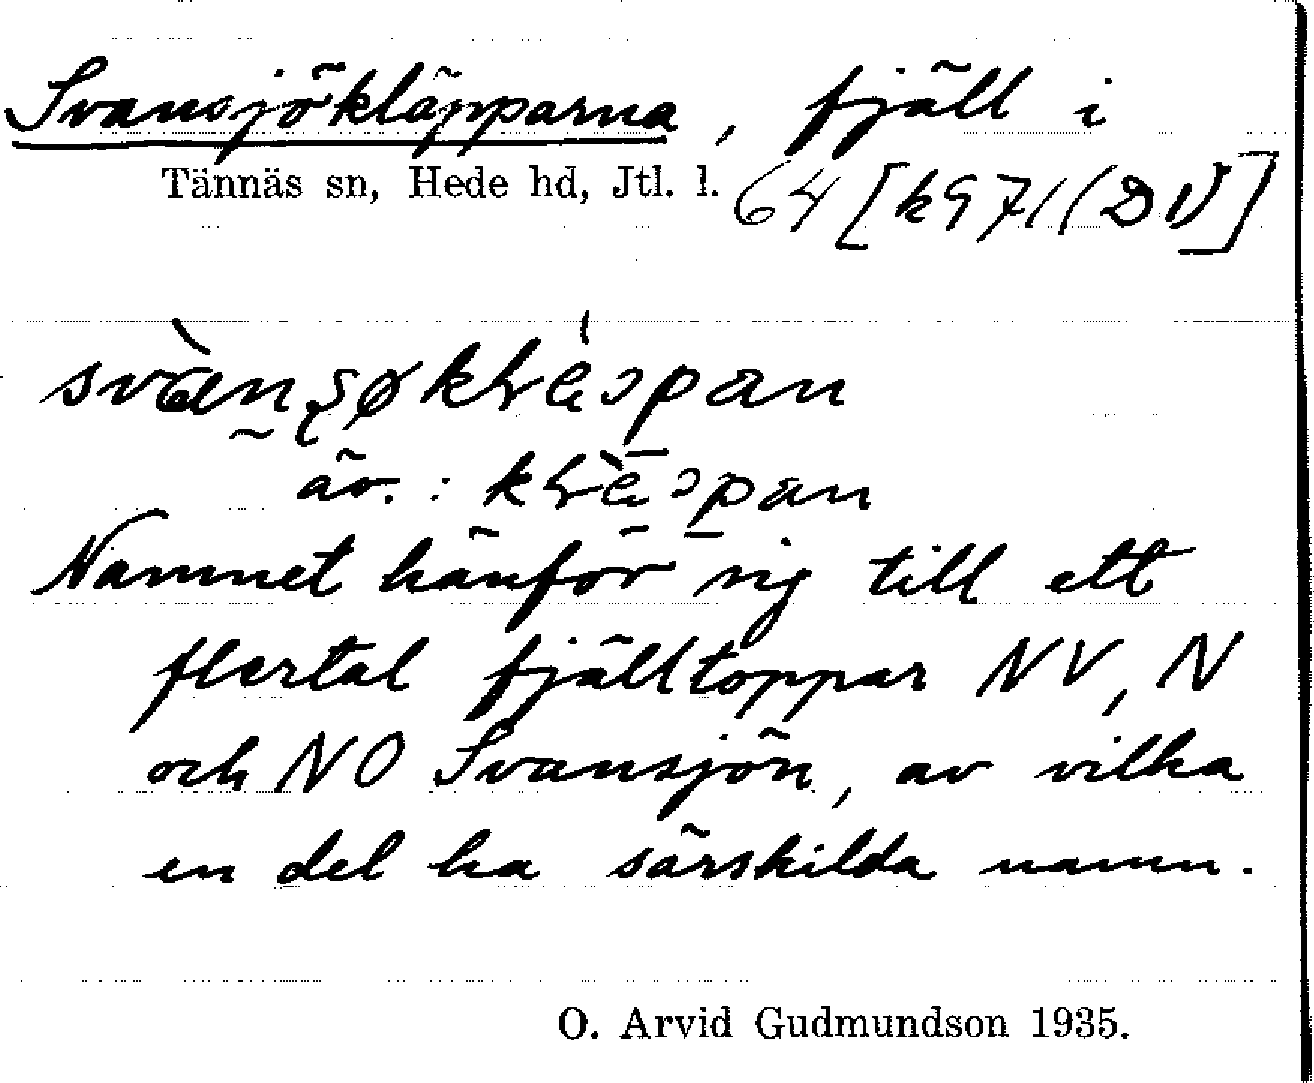 Svansjökläpparna, fjäll i
Tännäs sn, Hede hd, Jtl. l. 64 [k971(D1)]
äv.:
Namnet hänför sig till ett
flertal fjälltoppar NV, N
och NO Svansjön, av vilka
en del ha särskilda namn.
O. Arvid Gudmundson 1935.